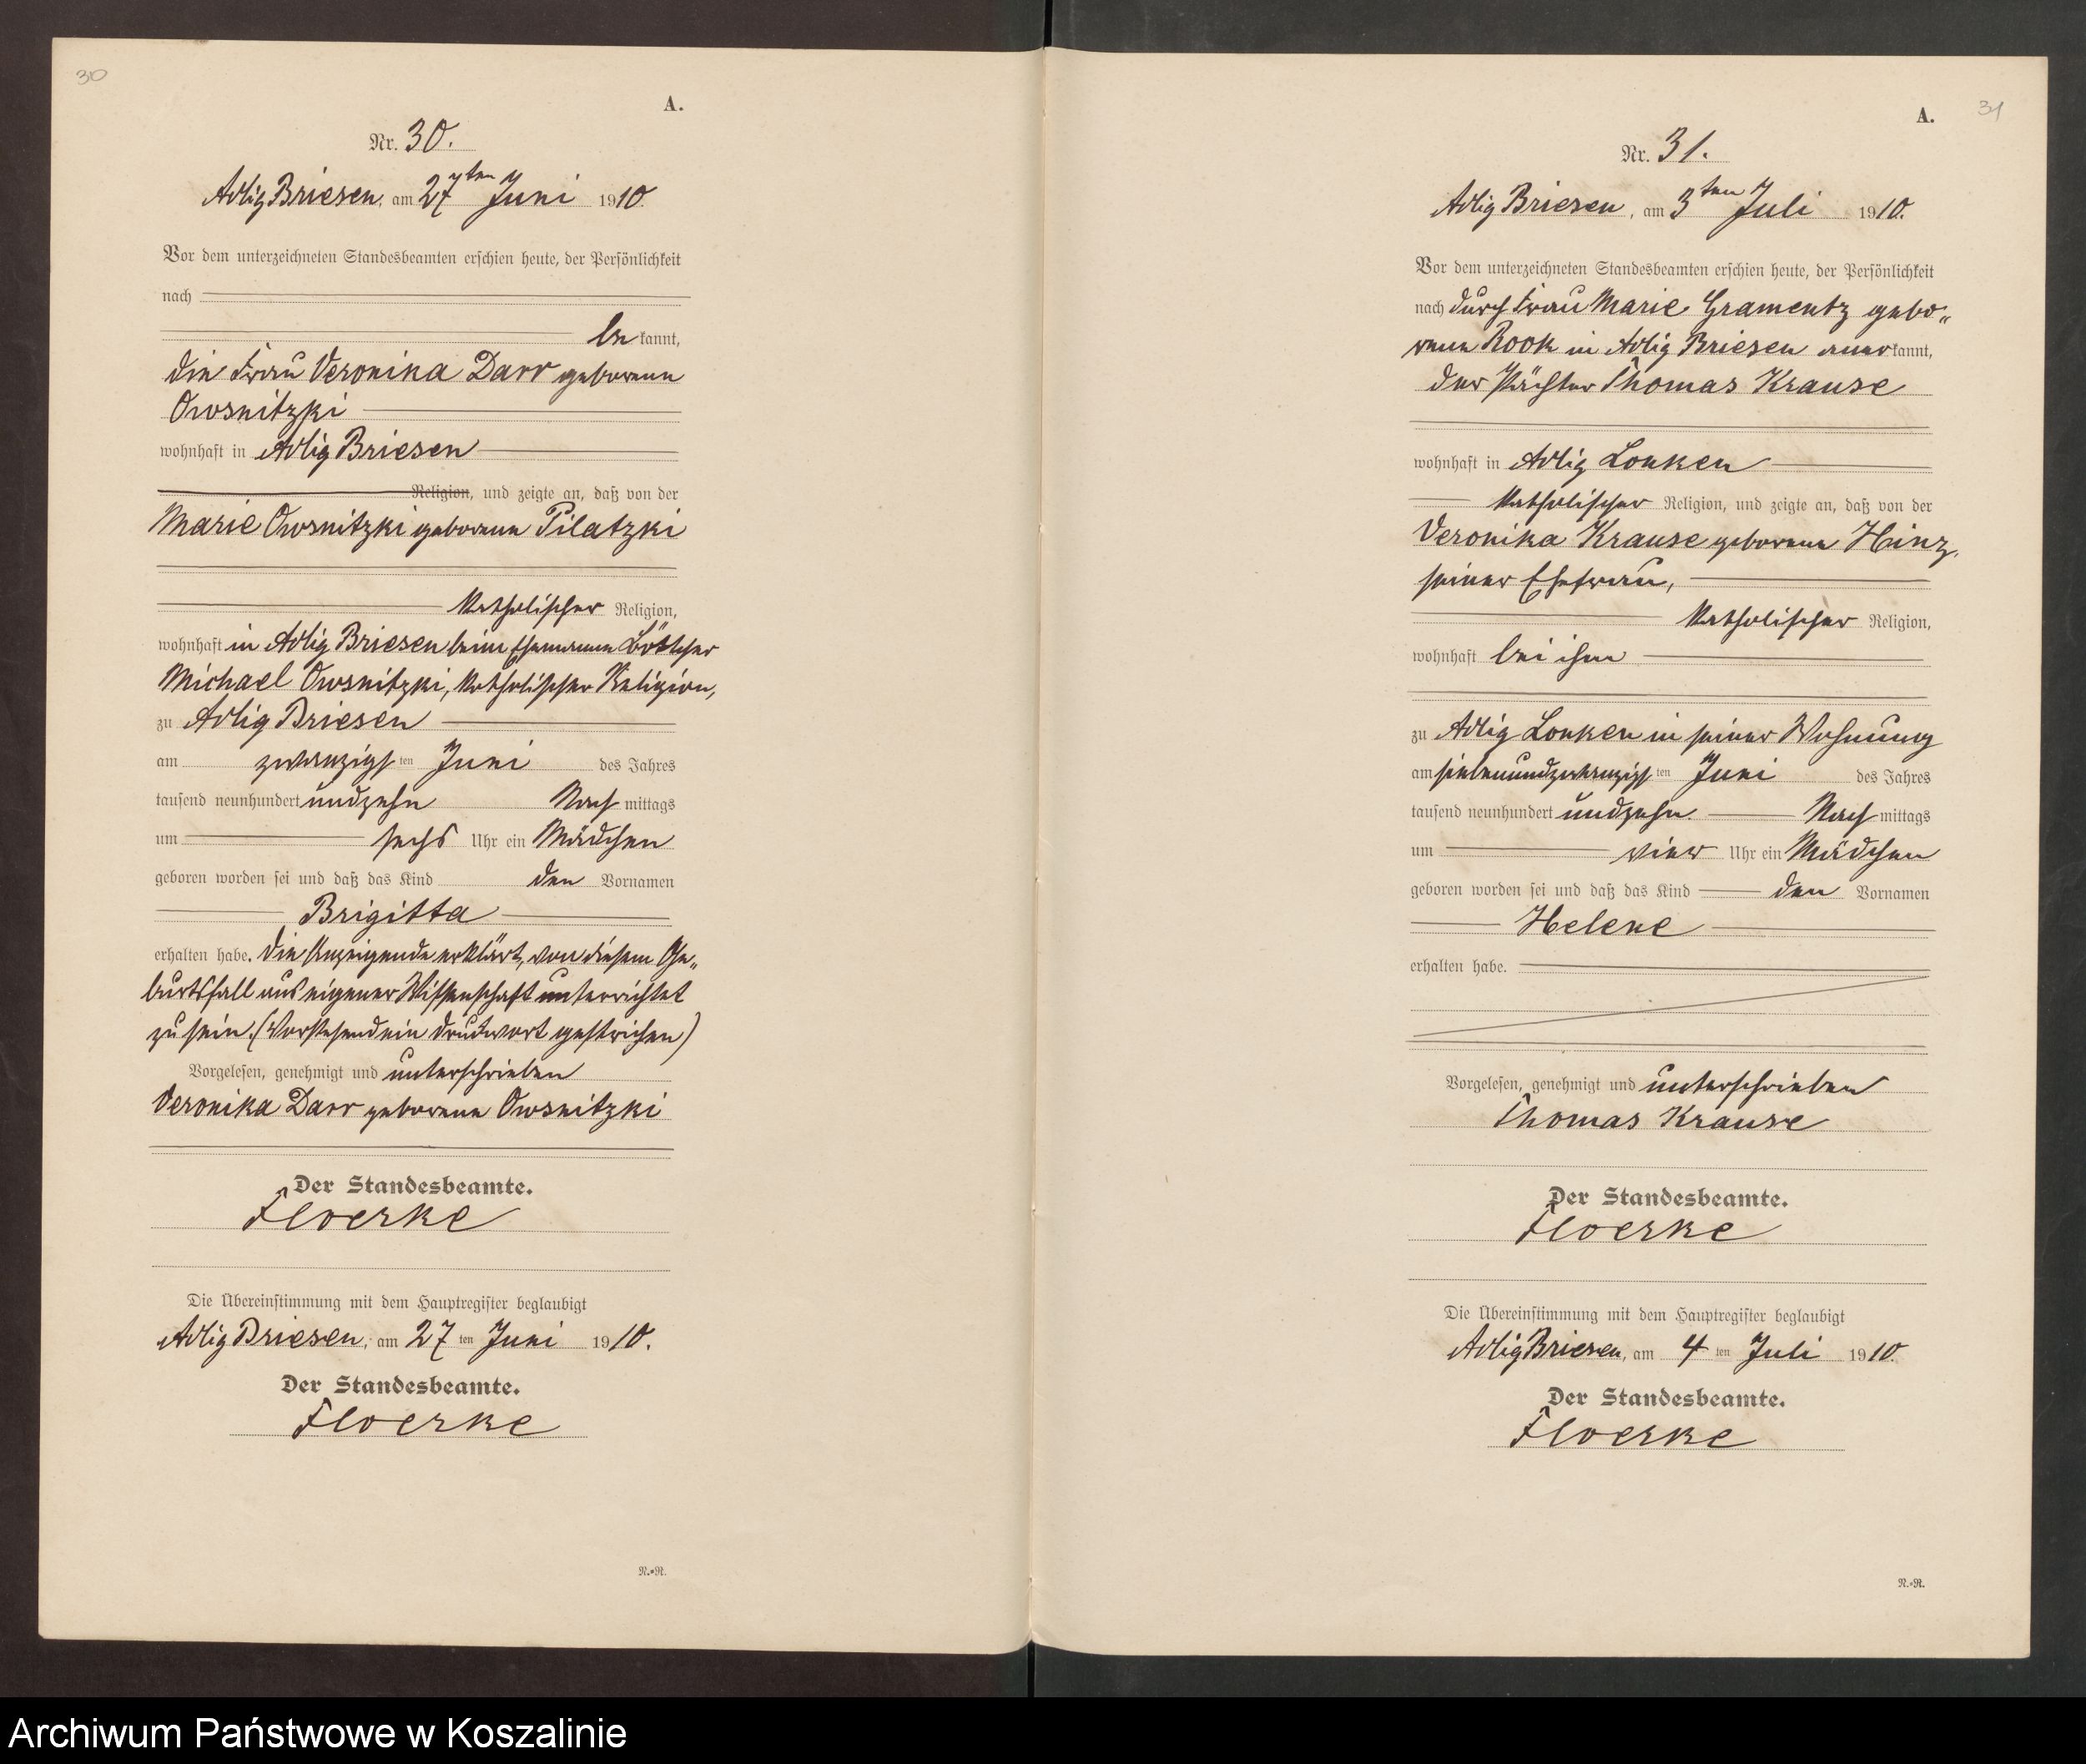 30
A.
Nr. 30.
Adlig Briesen, am 27ten Juni 1910.
Vor dem unterzeichneten Standesbeamten erschien heute, der Persönlichkeit
nach
bekannt,
die Frau Veronika Darr geborene
Owsnitzki
wohnhaft in Adlig Briesen
Religion, und zeigte an, daß von der
Marie Owsnitzki geborene Pilatzki
katholischer Religion,
wohnhaft in Adlig Briesen beim Ehemanne Böttcher
Michael Owsnitzki, katholischer Religion,
zu Adlig Briesen
am zwanzigsten Juni des Jahres
tausend neunhundert undzehn Nachmittags
um sechs Uhr ein Mädchen
geboren worden sei und daß das Kind den Vornamen
Brigitta
erhalten habe. Die Anzeigende erklärt, von diesem Ge„
burtsfall aus eigener Wissenschaft unterrichtet
zu sein. (Vorstehend ein Druckwort gestrichen)
Vorgelesen, genehmigt und unterschrieben
Veronika Darr geborene Owsnitzki
Der Standesbeamte.
Floerke
Die Übereinstimmung mit dem Hauptregister beglaubigt
Adlig Briesen, am 27 ten Juni 1910.
Der Standesbeamte.
Floerke
N.=R.
31
A.
Nr. 31.
Adlig Briesen, am 3ten Juli 1910.
Vor dem unterzeichneten Standesbeamten erschien heute, der Persönlichkeit
nach durch Frau Marie Gramentz gebo„
rene Rook in Adlig Briesen anerkannt,
der Pächter Thomas Krause
wohnhaft in Adlig Lonken
katholischer Religion, und zeigte an, daß von der
Veronika Krause geborene Hinz,
seiner Ehefrau,
katholischer Religion,
wohnhaft bei ihm
zu Adlig Lonken in seiner Wohnung
am siebenundzwanzigsten Juni des Jahres
tausend neunhundert undzehn Nachmittags
um vier Uhr ein Mädchen
geboren worden sei und daß das Kind den Vornamen
Helene
erhalten habe.
Vorgelesen, genehmigt und unterschrieben
Thomas Krause
Der Standesbeamte.
Floerke
Die Übereinstimmung mit dem Hauptregister beglaubigt
Adlig Briesen, am 4 ten Juli 1910.
Der Standesbeamte.
Floerke
N.=R.
Archiwum Państwowe w Koszalinie